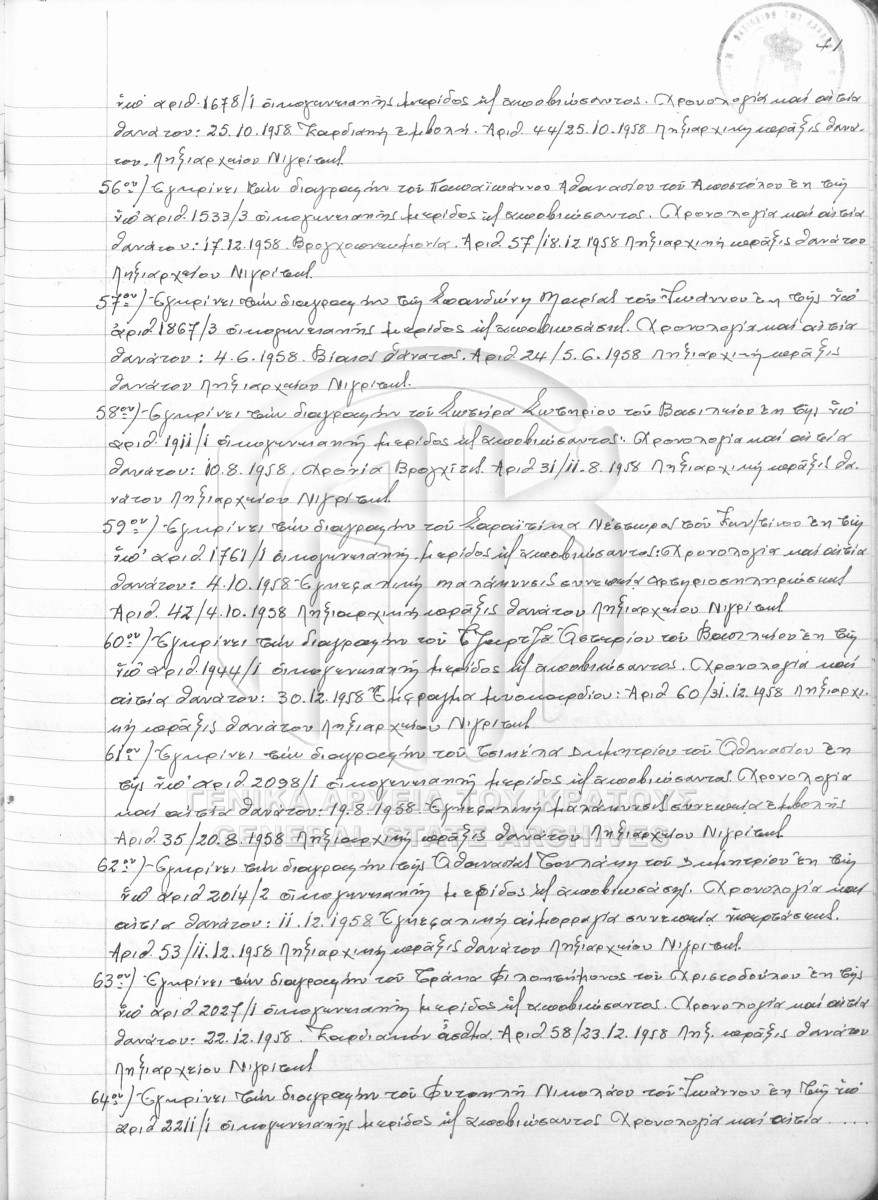 41
ὑπ' ἀριθ. 1678/1 οἰκογενειακῆς μερίδος ὡς ἀποβιώσαντος. Χρονολογία καί αἰτία
θανάτου: 25.10.1958 Καρδιακή ἐμβολή. Ἀριθ. 44/25.10.1958 Ληξιαρχική πρᾶξις θανά-
του. Ληξιαρχείου Νιγρίτης
56ον) Ἐγκρίνει τήν διαγραφήν τοῦ Παπαϊωάννου Ἀθανασίου τοῦ Ἀποστόλου ἐκ τῆς
ὑπ' ἀριθ. 1533/3 οἰκογενειακῆς μερίδος ὡς ἀποβιώσαντος. Χρονολογία καί αἰτία
θανάτου: 17.12.1958. Βρογχοπνευμονία. Ἀριθ. 57/18.12.1958 Ληξιαρχική πρᾶξις θανάτου
Ληξιαρχείου Νιγρίτης.
57ον) Ἐγκρίνει τήν διαγραφήν τῆς Σπανδώνη Μαρίας τοῦ Ἰωάννου ἐκ τῆς ὑπ'
ἀριθ. 1867/3 οἰκογενειακῆς μερίδος ὡς ἀποβιωσάσης. Χρονολογία καί αἰτία
θανάτου: 4.6.1958. Βίαιος θάνατος. Ἀριθ. 24/5.6.1958 Ληξιαρχική πρᾶξις
θανάτου Ληξιαρχείου Νιγρίτης.
58ον) Ἐγκρίνει τήν διαγραφήν τοῦ Σωτήρα Σωτηρίου τοῦ Βασιλείου ἐκ τῆς ὑπ'
ἀριθ. 1911/1 οἰκογενειακῆς μερίδος ὡς ἀποβιώσαντος. Χρονολογία καί αἰτία
θανάτου: 10.8.1958. Χρονία Βρογχίτις. Ἀριθ. 31/11.8.1958 Ληξιαρχική πρᾶξις θα-
νάτου Ληξιαρχείου Νιγρίτης
59ον) Ἐγκρίνει τήν διαγραφήν τοῦ Νέστωρος τοῦ Κων/τίνου ἐκ τῆς
ὑπ' ἀριθ. 1761/1 οἰκογενειακῆς μερίδος ὡς ἀποβιώσαντος: Χρονολογία καί αἰτία
θανάτου: 4.10.1958 Ἐγκεφαλική μαλάκυνσις συνεπεία ἀρτηριοσκληρώσεως
Ἀριθ. 42/4.10.1958 Ληξιαρχική πρᾶξις θανάτου Ληξιαρχείου Νιγρίτης
60ον) Ἐγκρίνει τήν διαγραφήν τοῦ Ἀστερίου τοῦ Βασιλείου ἐκ τῆς
ὑπ' ἀριθ. 1944/1 οἰκογενειακῆς μερίδος ὡς ἀποβιώσαντος. Χρονολογία καί
αἰτία θανάτου: 30.12.1958 Ἔμφραγμα μυοκαρδίου: Ἀριθ 60/31.12.1958 Ληξιαρχι-
κή πρᾶξις θανάτου Ληξιαρχείου Νιγρίτης
61ον) Ἐγκρίνει τήν διαγραφήν τοῦ Τσιμέπα Δημητρίου τοῦ Ἀθανασίου ἐκ
τῆς ὑπ' ἀριθ 2098/1 οἰκογενειακῆς μερίδος ὡς ἀποβιώσαντος. Χρονολογία
καί αἰτία θανάτου: 19.8.1958. Ἐγκεφαλική μαλάκυνσις συνεπεία ἐμβολῆς
ΓΕΝΙΚΑ ΑΡΧΕΙΑ ΤΟΥ ΚΡΑΤΟΥΣ
Ἀριθ. 35/20.8.1958 Ληξιαρχική πρᾶξις θανάτου Ληξιαρχείου Νιγρίτης
GENERAL STATE ARCHIVES
62ον) Ἐγκρίνει τήν διαγραφήν τῆς Ἀθανασίας τοῦ Δημητρίου ἐκ τῆς
ὑπ' ἀριθ 2014/2 οἰκογενειακῆς μερίδος ὡς ἀποβιωσάσης. Χρονολογία καί
αἰτία θανάτου: 11.12.1958 Ἐγκεφαλική αἱμορραγία συνεπεία ὑπερτάσεως.
Ἀριθ. 53/11.12.1958 Ληξιαρχική πρᾶξις θανάτου Ληξιαρχείου Νιγρίτης
63ον) Ἐγκρίνει τήν διαγραφήν τοῦ Τράκα Φιλοποίμονος τοῦ Χριστοδούλου ἐκ τῆς
ὑπ' ἀριθ 2027/1 οἰκογενειακῆς μερίδος ὡς ἀποβιώσαντος. Χρονολογία καί αἰτία
θανάτου: 22.12.1958. Καρδιακόν ἆσθμα. Ἀριθ 58/23.12.1958 Ληξ. πρᾶξις θανάτου
Ληξιαρχείου Νιγρίτης
64ον) Ἐγκρίνει τήν διαγραφήν τοῦ Φυτοπλῆ Νικολάου τοῦ Ἰωάννου ἐκ τῆς ὑπ'
ἀριθ 2211/1 οἰκογενειακῆς μερίδος ὡς ἀποβιώσαντος Χρονολογία καί αἰτία ....